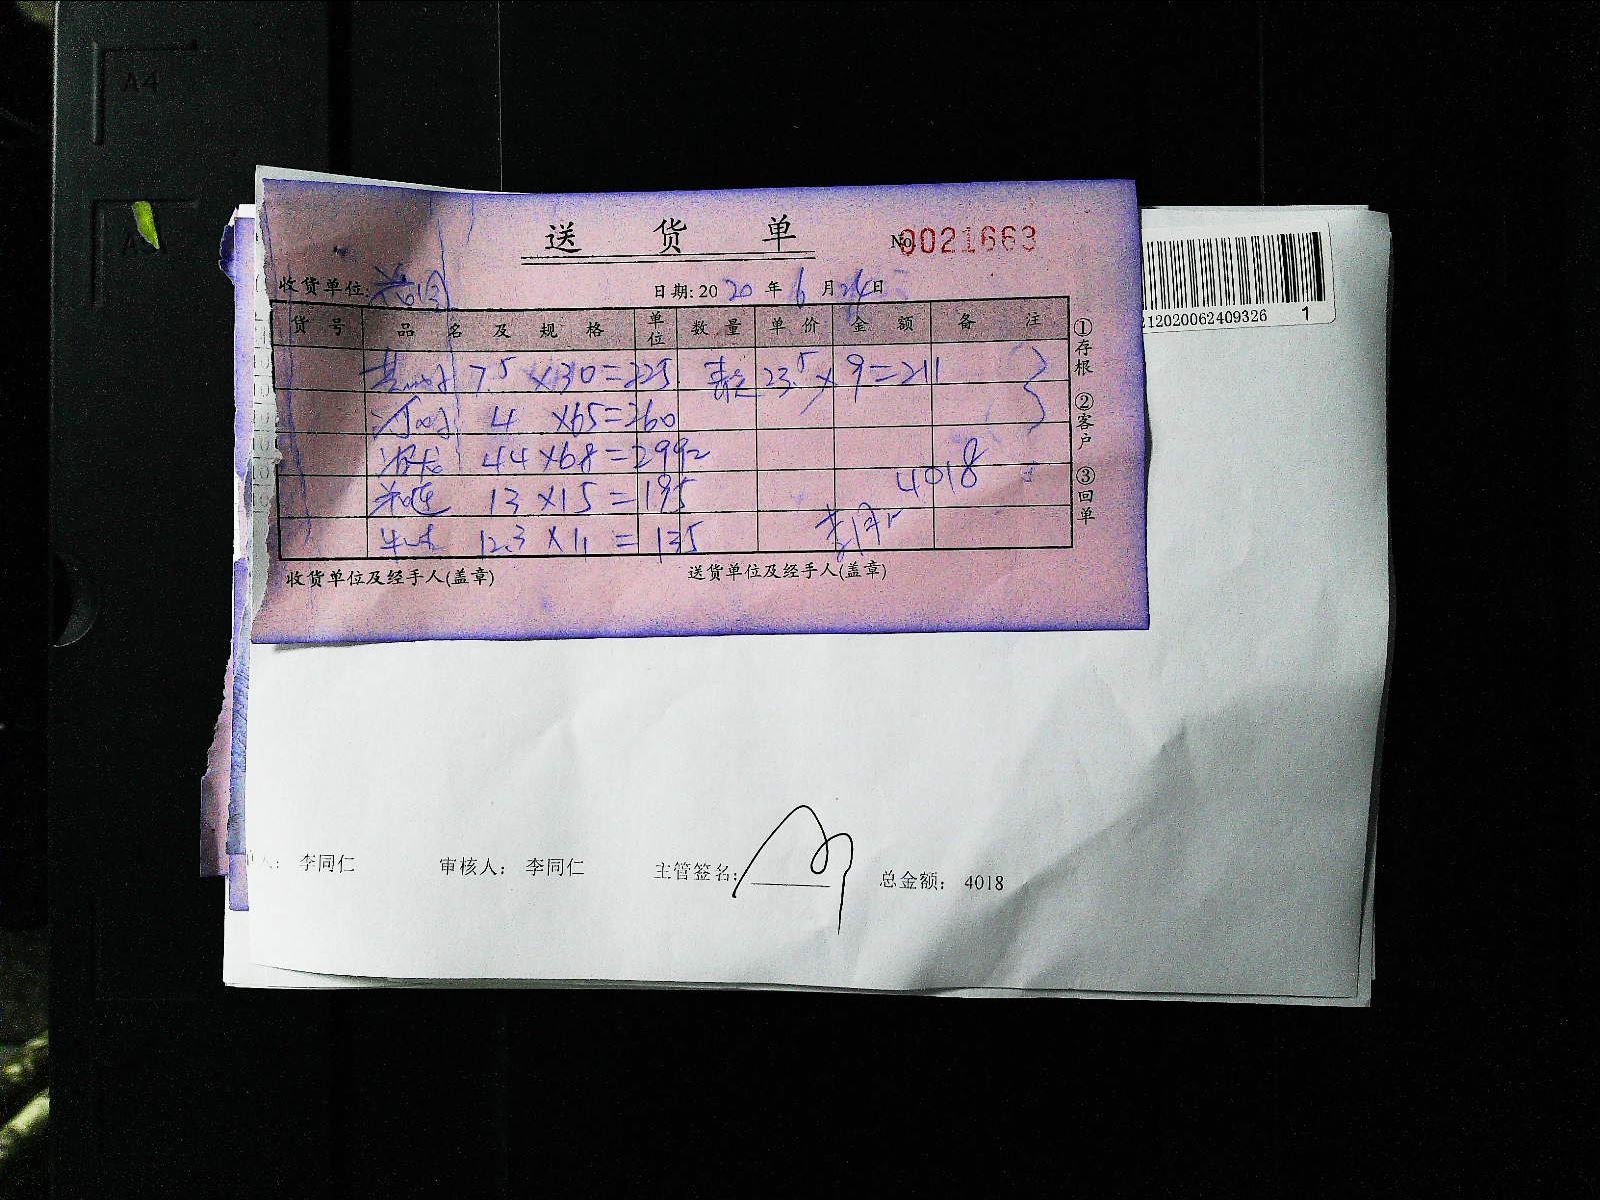 A4
送货单 No 0021663
收货单位: 日期: 2020年6月24日
12020062409326 1
货号 品名及规格 单位 数量 单价 金额 备注
75×30=225 23.5×9=211
4 ×65=260
44×68=2992
13×15=195
12.3×11=135
4018
①存根 ②客户 ③回单
收货单位及经手人(盖章) 送货单位及经手人(盖章)
人: 李同仁 审核人: 李同仁 主管签名: 总金额: 4018